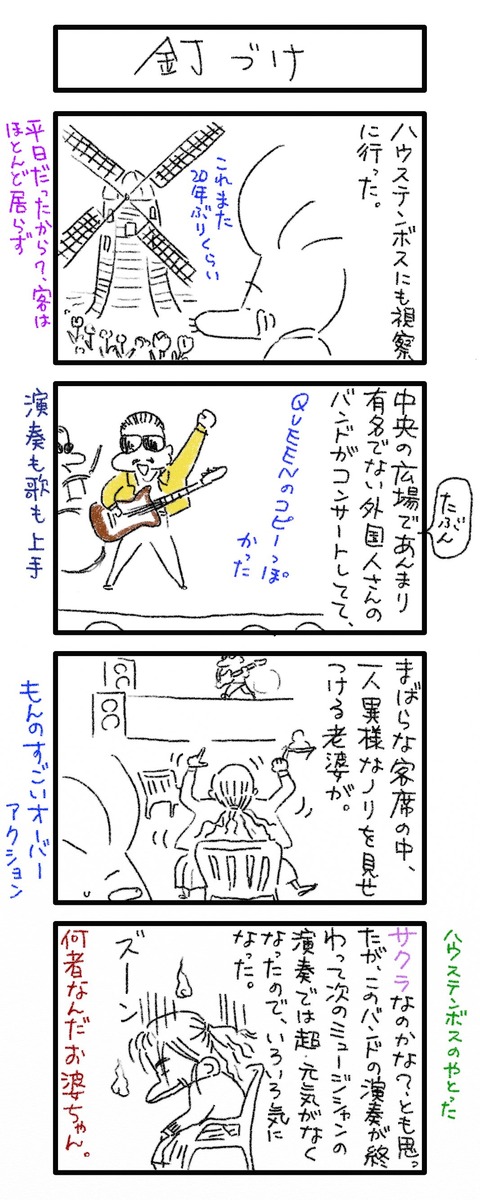 釘づけ
ハウステンボスにも視察
に行った。
これまた
20年ぶりくらい
平日だったから?、客は
ほとんど居らず
中央の広場であんまり
有名でない外国人さんの
バンドがコンサートしてて、
たぶん
QUEENのコピーっぽ
かった
演奏も歌も上手
まばらな客席の中、
一人異様なノリを見せ
つける老婆が。
もんのすごいオーバー
アクション
ハウステンボスのやとった
サクラなのかな?とも思っ
たが、このバンドの演奏が終
わって次のミュージシャンの
演奏では超・元気がなく
なったので、いろいろ気に
なった。
ズーン
何者なんだお婆ちゃん。